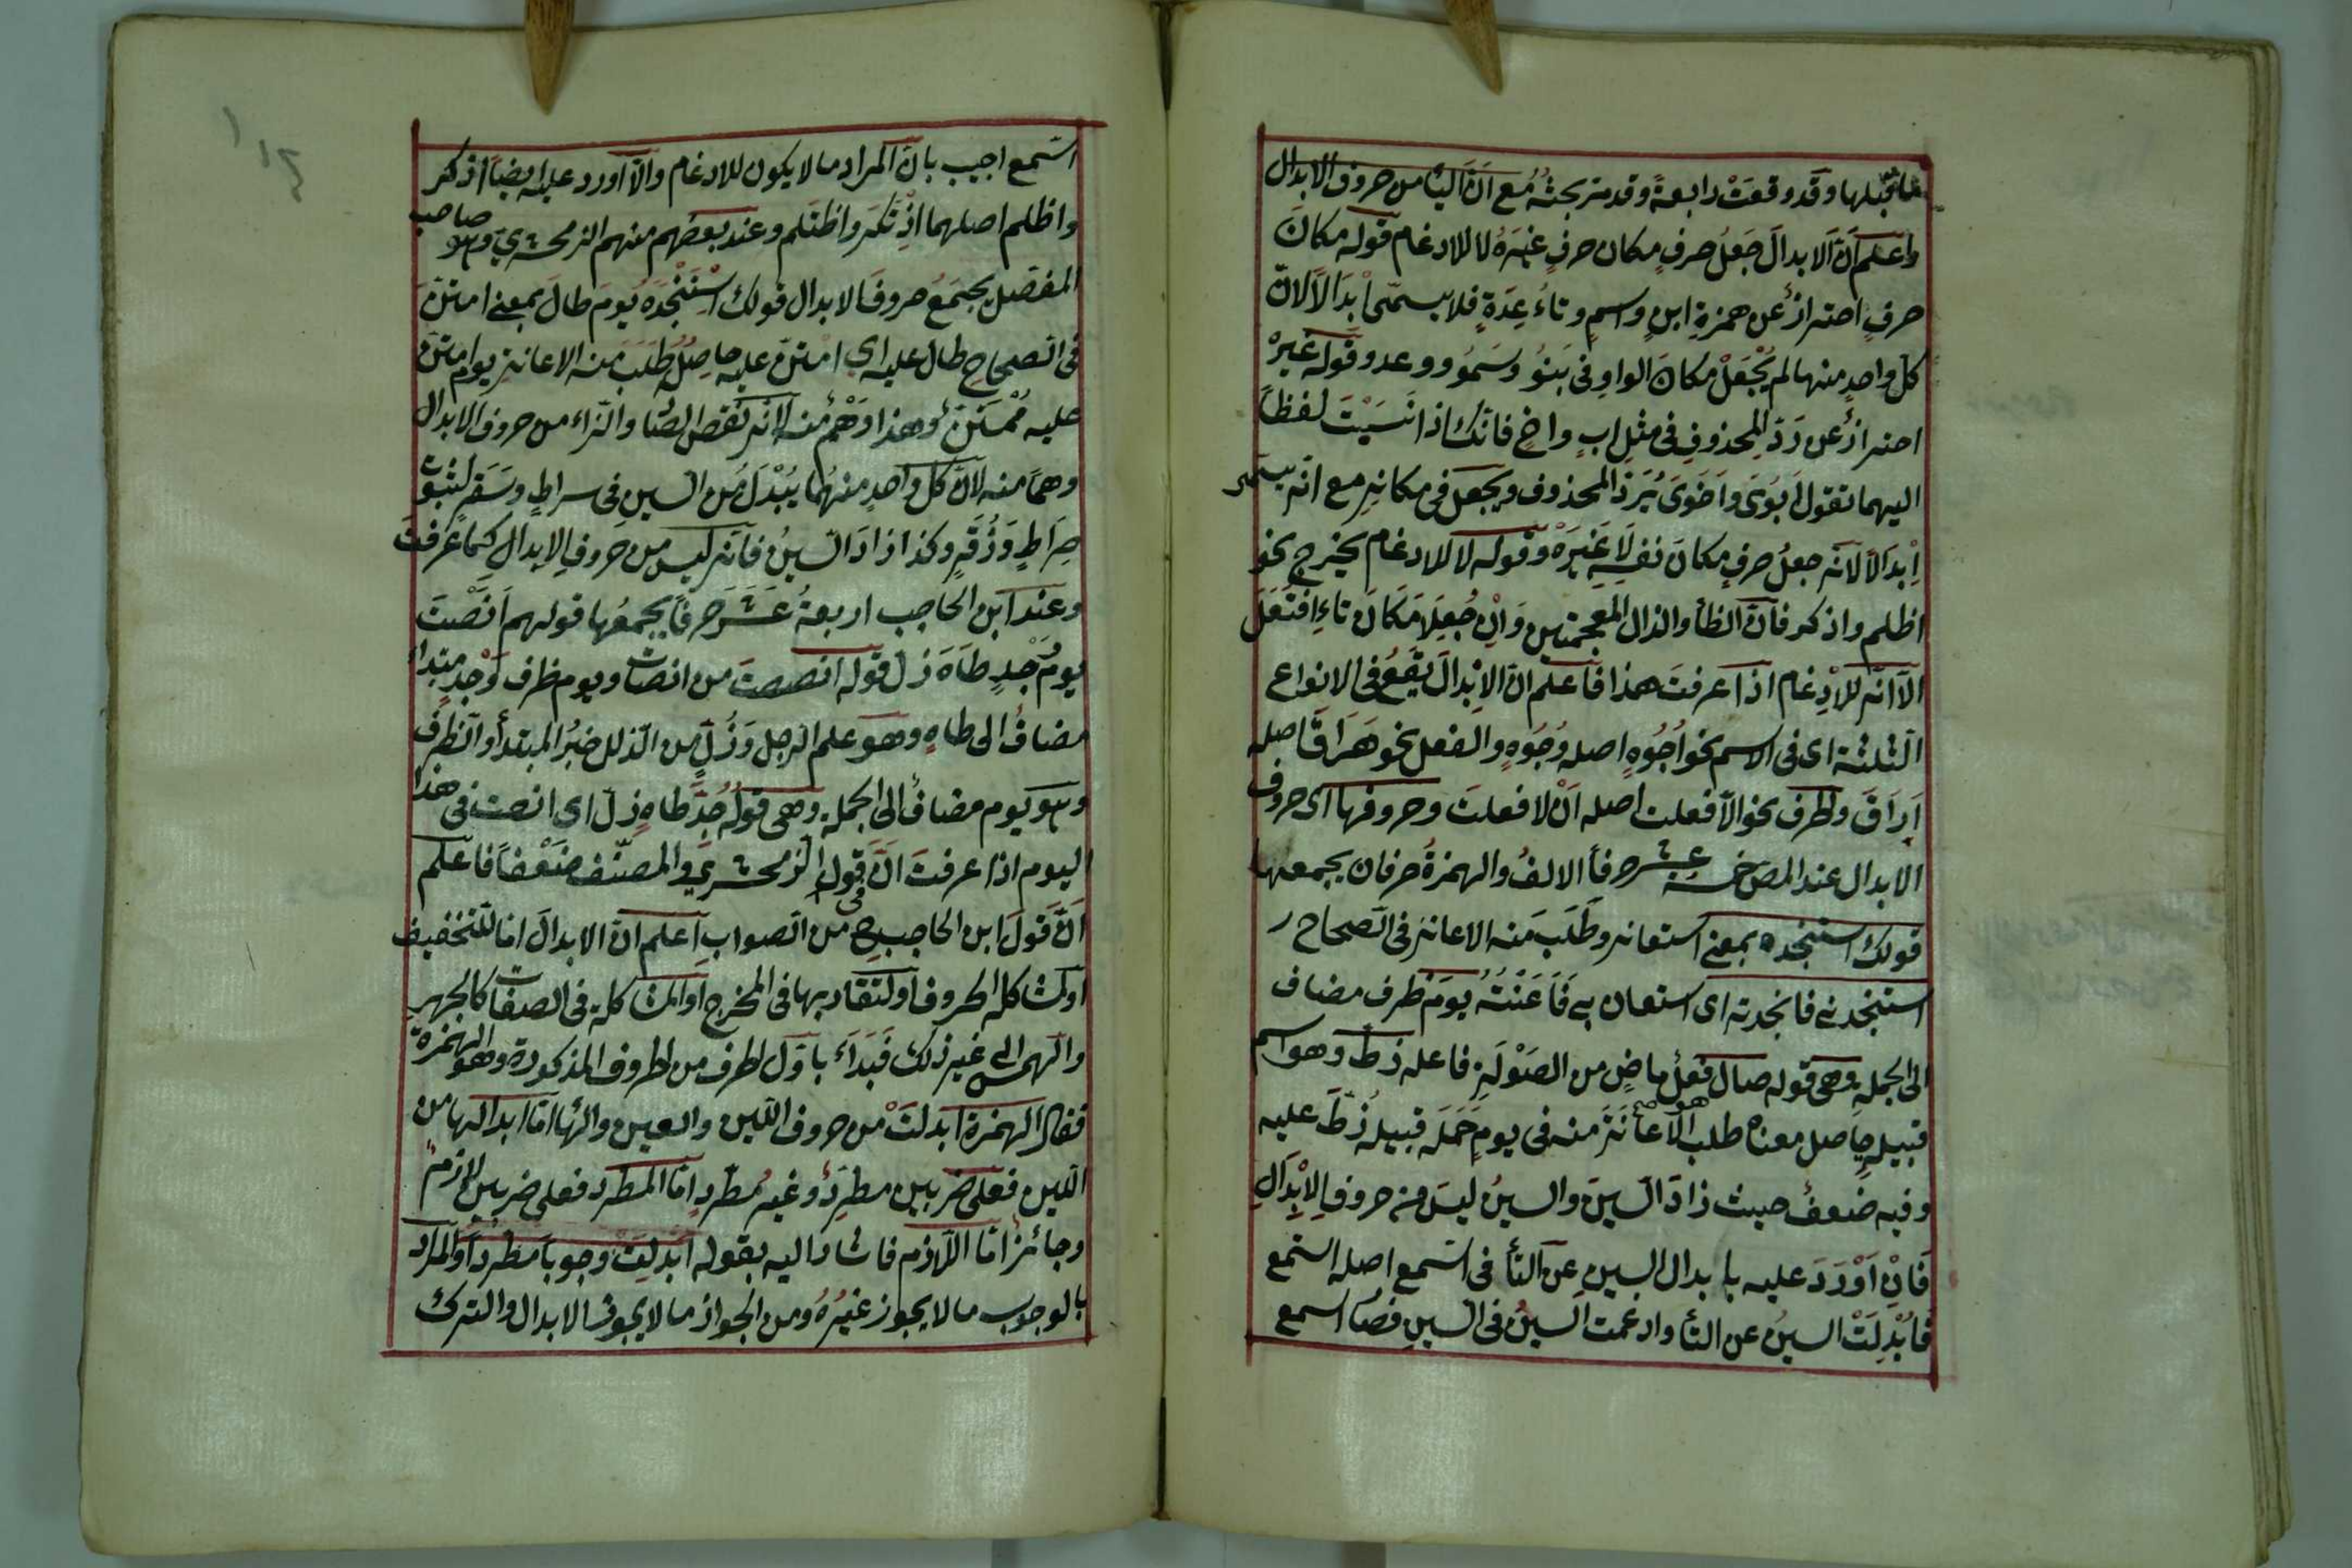 ما قبلها وقد وقعَتْ رابعةً وقد مرّ بحثُهُ مع انّ اليأ من حروف الابدال
واعلم انّ الابدالَ جَعلُ حرفٍ مكان حرفٍ غيَرهُ لا للادغام قوله مكانَ
حرفٍ احتراز عن همزةِ ابنٍ واسمٍ وتاءُ عِدَةٍ فلا يسمّى ابدالًا لانّ
كلّ واحدٍ منها لم يُجْعَلْ مكانَ الواو فى بَنوُ وسَموُ ووعد وقوله غَيرْ
احترازٌ عن رَدّ المحذوفِ فى مثلِ ابٍ واخٍ فانّك اذا نَسَبْتَ لفظاً
اليهما تقول ابَوىَ واَخَوىَ يُرَدّ المحذوف ويجعل فى مكانهِ مع انّه يسمّى
اِبْدَالًا لانّه جعلُ حرفٍ مكانَ نفسِهِ لَا غَيرَهْ وقوله لا للادغام يخرج نحو
اظلم واذكر فانّ الظأ والذال المعجمتين وَاِنْ جُعِلَا مَكَانَ تاءِ افتَعَلَ
الّا انّه للادِغام اذا عرفتَ هذا فاعلم انّ الاِبْدالَ يَقَعُ فى الانواع
الثلثة اى فى الاسم نحو اُجُوُهٍ اصله وُجُوهٍ والفعل نحو هَرَاقَ اصله
اَرَاقَ والحرف نحو الّا فعلت اصله اَنْ لا فعلتَ وحروفها اى حروف
الابدال عند المص خمسة عشر حرفاً الالفُ والهمزةُ حرفان يجمعها
قولك استنجده بمعنى استعانه وطَلَبَ منه الاعانة فى الصّحاح
استنجدنى فانجدته اى استعان بى فَاَعَنْتُهُ يومَ ظرف مضاف
الى الجملةِ وهى قوله صال فعلٌ ماضٍ من الصَوْلَةِ فاعله زطّ وهو اسم
قبيلهٍ حاصل معناه طلب هو الاعانَةَ منه فى يومٍ حَمَلَه قبيلهُ زُطّ عليه
وفيه ضُعفٌ حيث زادَ السّينَ والسينُ ليسَ من حروفِ الاِبْدَالِ
فَاِنْ اَوْرَدَ عليه بابدال السينِ عن التأ فى اسّمع اصله استمع
فَابُدِلَتْ السينُ عن التأ وادغمت السينُ فى السينِ فصا اسمع
اسّمع اجيب بانّ المراد ما لا يكون للادغام والّا اورد عليه ايضاً اذكر
واظلم اصلهما اذِتَكَرَ واظتَلم وعند بعضهم منهم الزمخشرىّ وهو صاحب
المفصّل يجمَعُ حروفَ الابدال قولك اسْتَنْجَدَهُ يومَ طالَ بمعنى امتنّ
فى الصحاح طال عليه اى امتنّ عليه حاصِلُه طَلَبَ منه الاعانة يوم امتنّ
عليه مُمْتَنّ وهذا وَهْمٌ منه لانّه نقص الصّا والزاء من حروف الابدال
وهما منه لانّ كلّ واحدٍ منهُما يُبْدَلُ من السين فى سراطٍ وسَقرٍ لثبوت
صِرَاطٍ وَزُقَرٍ وكذا زادَ السينُ فانّه ليس من حروفِ الابدالِ كما عَرفتَ
وعند ابن الحاجب اربعةُ عَشَرَ حرفاً يجمعُها قولهم اَنْصَتَ
يومُ جدٍ طَاهَ زلّ قوله انصت من انصات ويوم ظرف وجدٍ مبتداء
مضافُ الى طاهٍ وهو علم الرجل وَزُلّ من الذلل خبرُ المبتدأ والظرف
وهو يوم مضافٌ الى الجملهِ وهى قولُه جُدّ طاهٍ زلّ اى انصت فى هذا
اليوم اذا عرفتَ انّ فى قول الزمخشرىّ والمصنّف ضَعْفاً فاعلم
انّ قَولَ ابن الحاجب ح من الصواب اعلم انّ الابدالَ امّا للتخفيف
او لمشاكله الحروف او لتقاربها فى المخرج او المشاكلة فى الصفات كالجهر
والهمس الى غير ذلك فَبَداَءَ باوّل الحرف من الحروف المذكورة وهو الهمزة
فقال الهمزة ابدلتَ من حروف اللّين والعين والها امّا ابدالها من
اللّين فعلى ضربين مطردٌ وغير مُطّردٍ امّا المطّرد فعلى ضربين لازم
وجائزٌ امّا اللّازم فاشار اليه بقوله ابدلِتْ وجوباً مطرداً والمراد
بالوجوب ما لا يجوز غيُرهُ ومن الجواز ما لا يجوز الابدال والترك